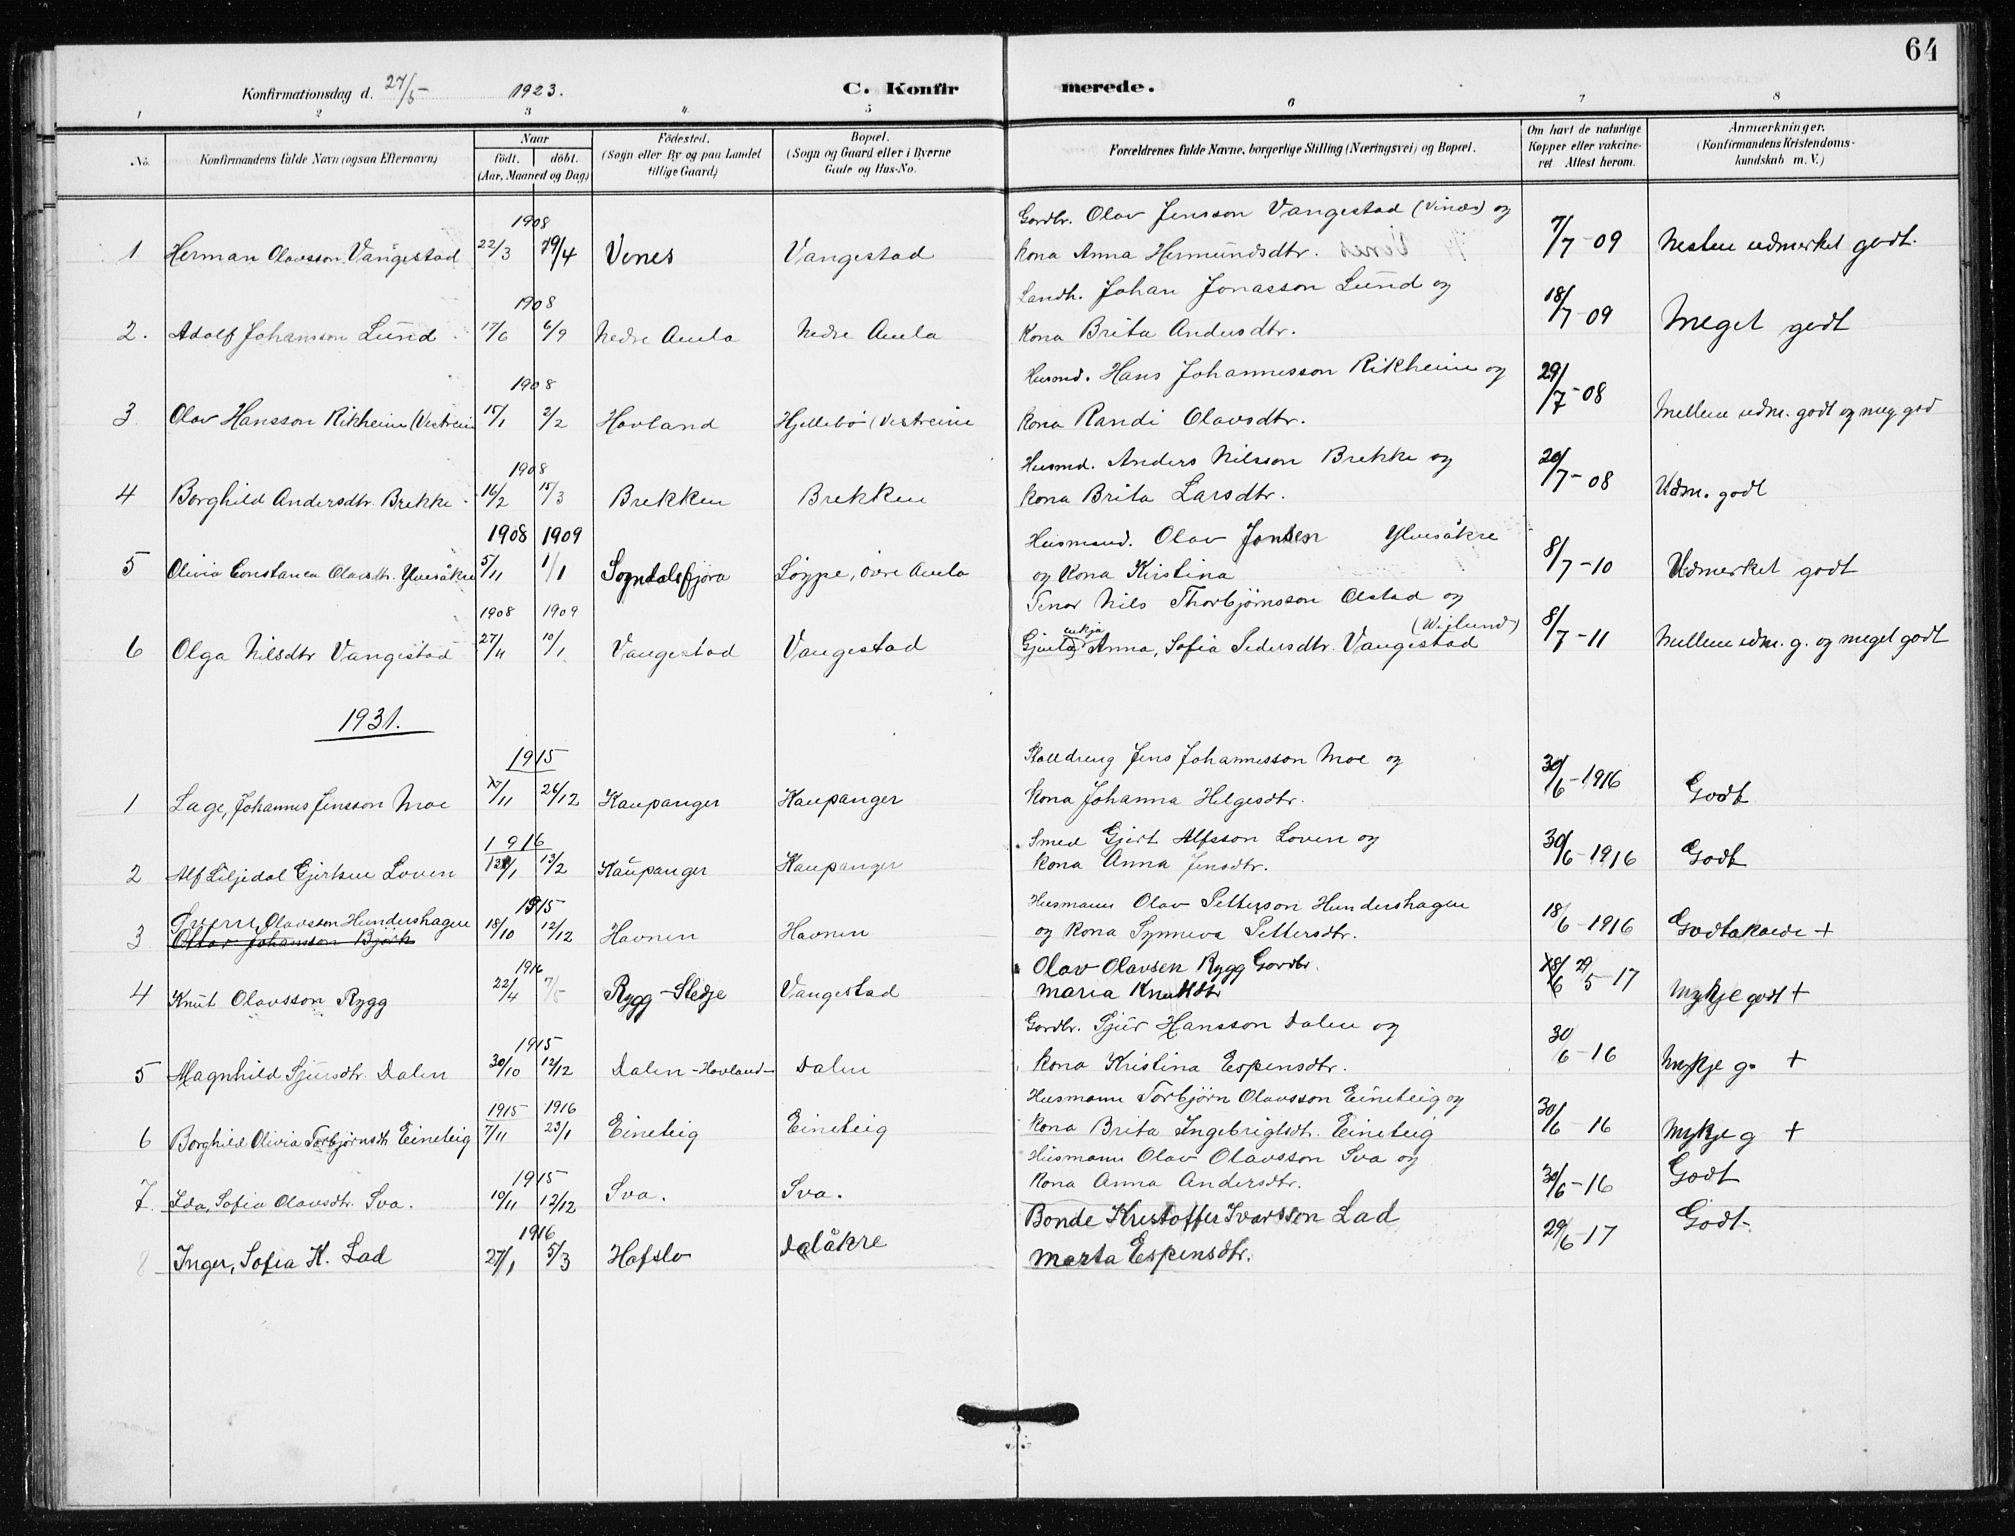 64
Konfirmationsdag d. 27/5 1923. C. Konfirmerede.
1 2 3 4 5 6 7 8
No. Konfirmandens fulde Navn (ogsaa Efternavn) Naar født. døbt. (Aar, Maaned og Dag) Fødested. (Sogn eller By og paa Landet tillige Gaard) Bopæl. (Sogn og Gaard eller i Byerne Gade og Hus-No. Forældrenes fulde Navne, borgerlige Stilling (Næringsvei) og Bopæl. Om havt de naturlige Kopper eller vakcineret Attest herom. Anmærkninger. (Konfirmandens Kristendomskundskab m. V.)
1908 Gardbr. Olav Jensson Vangestad (Vines) og
1 Herman Olavsson Vangestad 22/3 19/4 Vines Vangestad kona Anna Hermundsdtr. 7/7-09 Nesten udmerket godt.
1908 Landh. Johan Jonasson Lund og
2. Adolf Johansson Lund 17/6 6/9 Nedre Amla Nedre Amla Kona Brita Andersdtr. 18/7-09 Meget godt
1908 Husmd. Hans Johannesson Rikheim og
3 Olav Hansson Rikheim (Vestreim 15/1 2/2 Hovland Hjellebö (Vestreim kona Randi Olavsdtr. 29/7-08 Mellem udm. godt og meg god
1908 Husmd. Anders Nilsson Brekke og
4 Borghild Andersdtr. Brekke 16/2 15/3 Brekken Brekken kona Brita Larsdtr. 20/7-08 Udm. godt
1908 1909 Husmand. Olav Jonsen Ylvisåkre
5 Olivia Constanca Olavsdtr. Ylvisåkre 5/11 1/1 Sogndalsfjøra Løype, øvre Amla og kona Kirstina 8/7-10 Udmerket godt
1908 1909 Tenar Nils Thorbjørnsson Olstad og
6 Olga Nilsdtr Vangestad 27/11 10/1 Vangestad Vangestad Gjenta enkja Anna, Sofia Pedersdtr. Vangestad (Wiglund) 8/7-11 Mellem udm. g. og meget godt
1931.
1915 Stalldreng Jens Johannesson Moe og
1 Lage, Johannes Jensson Moe /11 26/12 Kaupanger Kaupanger kona Johanna Helgesdtr. 30/6-1916 Godt
1916 Smed Gjert Alfsson Loven og
2 Alf Liljedal Gjertsen Loven /1 13/2 Kaupanger Kaupanger kona Anna Jensdtr. 30/6-1916 Godt
Sverre, Olavsson Hundershagen 1915 Husmann Olav Petterson Hundershagen
3 Ottar Johansson Bjørk 18/10 12/12 Havnen Havnen og kona Synneva Pettersdtr. 18/6-1916 Godtakande +
1916 Olav Olavsen Rygg Gardbr.
4 Knut Olavsson Rygg 22/4 7/5 Rygg-Sledje Vangestad Maria Knutsdtr 18/6 29/5-17 Mykje godt +
1915 Gardbr. Sjur Hansson Dalen og
5 Magnhild Sjursdtr. Dalen 30/10 12/12 Dalen-Hovland Dalen kona Kristina Espensdtr. 30/6-16 Mykje g. +
1915 1916 Husmann Torbjörn Olavsson Eineteig og
6 Borghild Olivia Torbjørnsdtr Eineteig 7/11 23/1 Eineteig Eineteig kona Brita Ingebrigtsdtr. Eineteig 30/6-16 Mykje g +
1915 Husmann Olav Olavsson Sva og
7. Ida, Sofia Olavsdtr. Sva. 10/11 12/12 Sva. Sva. kona Anna Andersdtr. 30/6-16 Godt
1916 Bonde Kristoffer Ivarsson Lad
8 Inger, Sofia K. Lad 27/1 5/3 Hafslo Dalåkre Marta Espensdtr. 29/6-17 Godt